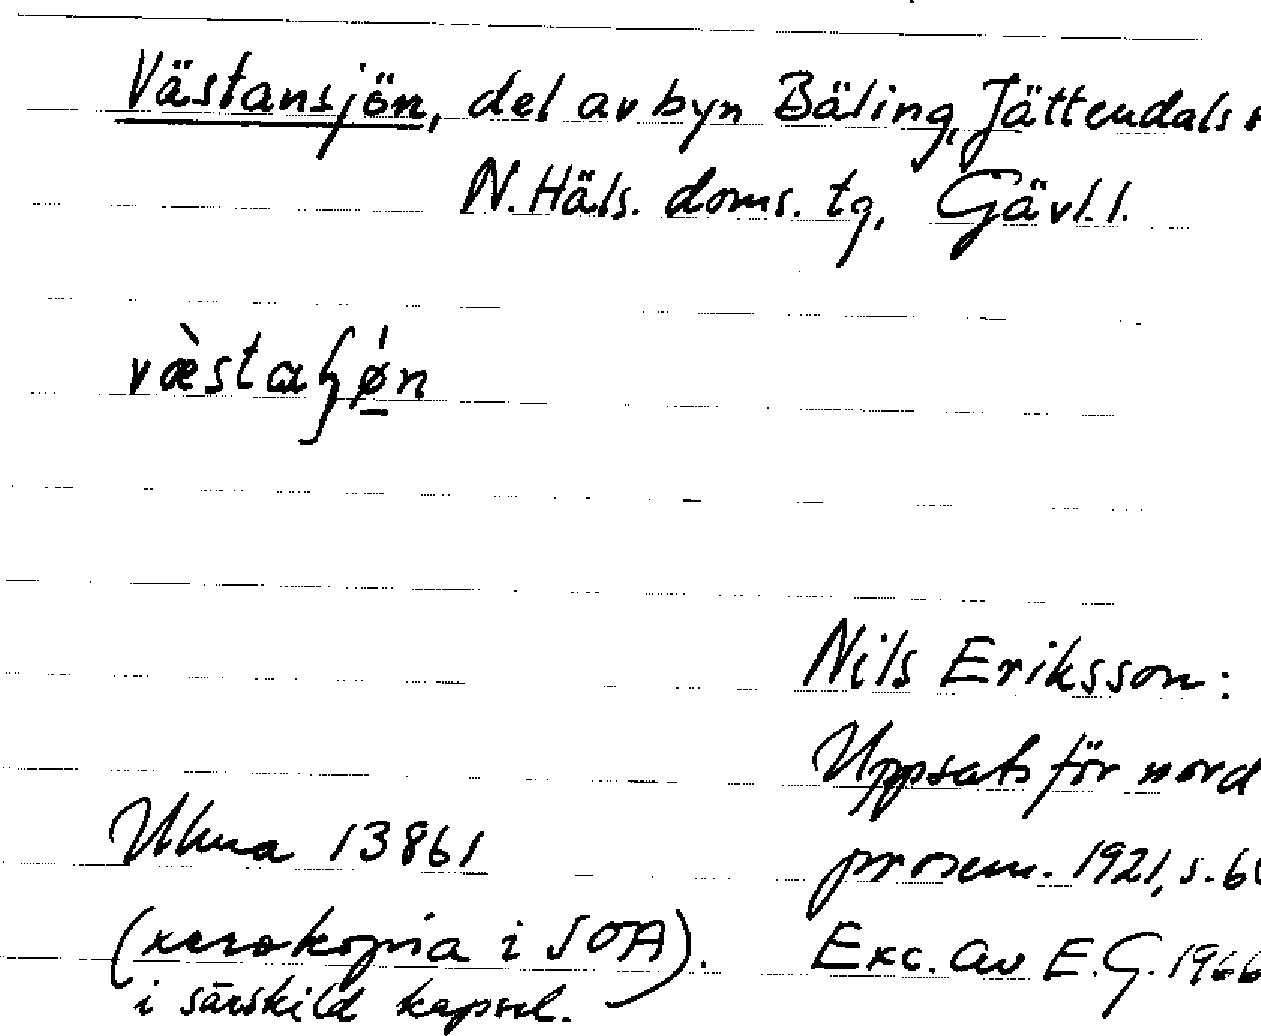 Västansjön, del av byn Bäling, Jättendals s
N. Häls. doms. tg, Gävl. l.
væ̀staʃǿ̠n
Nils Eriksson:
Uppsats för nord
prosem. 1921, s. 6
Ulma 13861
(xerokopia i SOA).
Exc. av E.G. 1966
i särskild kapsel.